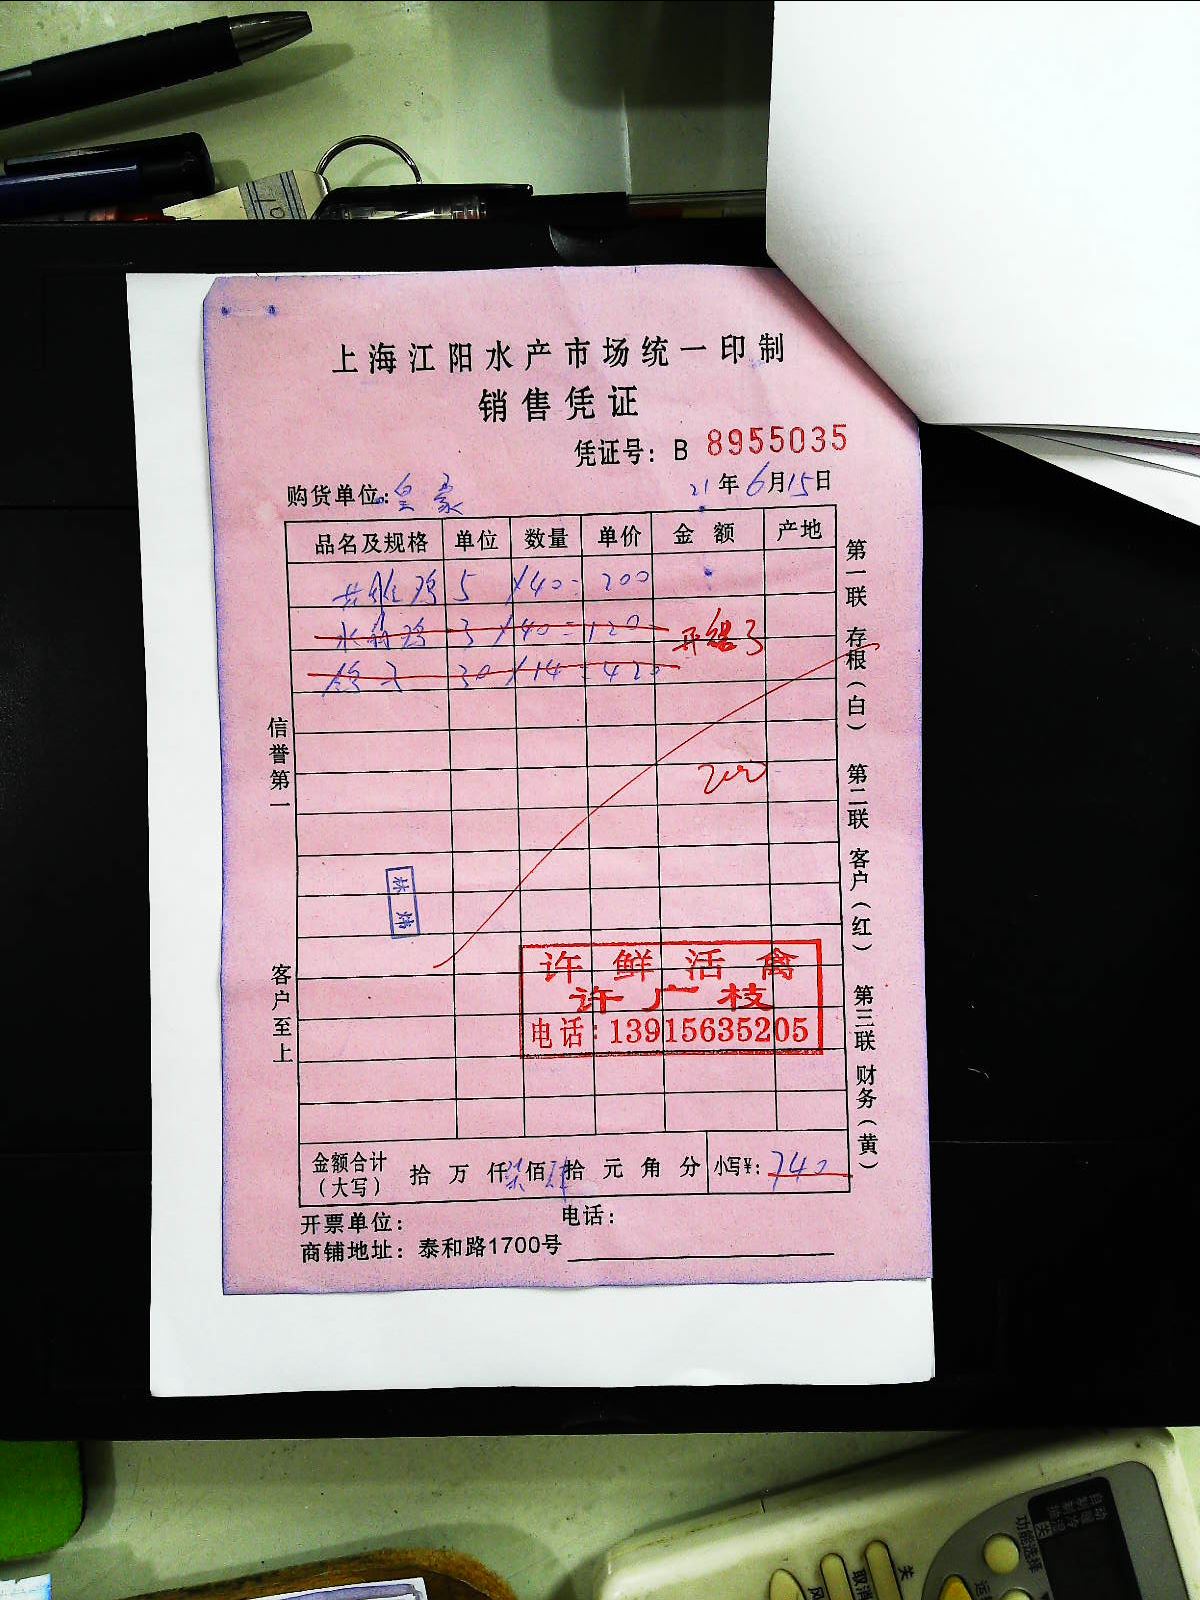 上海江阳水产市场统一印制
销售凭证
凭证号：B 8955035
购货单位：皇豪 21年6月15日
品名及规格 单位 数量 单价 金额 产地
鸡 5 /40= 200
水 鸡 3 /40=120 开错了
30 /14=420
200
信誉第一
客户至上
第一联 存根（白）
第二联 客户（红）
第三联 财务（黄）
许鲜活禽
许广枝
电话：13915635205
金额合计（大写） 拾 万 仟 柒佰 肆拾 元 角 分 小写¥：740
开票单位： 电话：
商铺地址：泰和路1700号
功能选择
取消
关
风